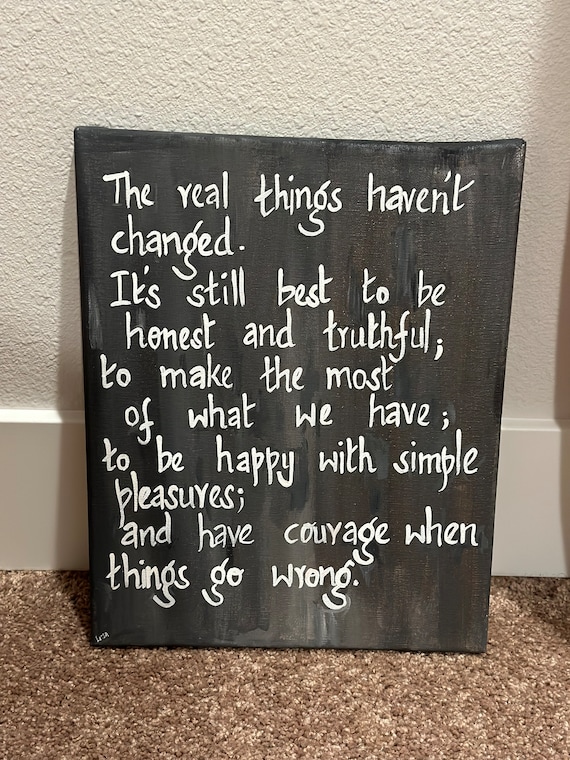 The real things haven't
changed.
It's still best to be
honest and truthful;
to make the most
of what we have;
to be happy with simple
pleasures;
and have courage when
things go wrong.